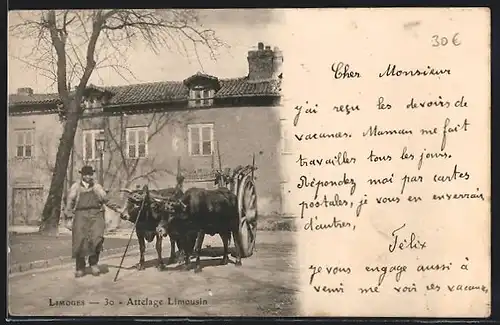 30€
Cher Monsieur
j'ai reçu les devoirs de
vacances. Maman me fait
travailler tous les jours.
Répondez moi par cartes
postales, je vous en enverrais
d'autres,
Félix
je vous engage aussi à
venir me voir ces vacances.
LIMOGES — 30 - Attelage Limousin